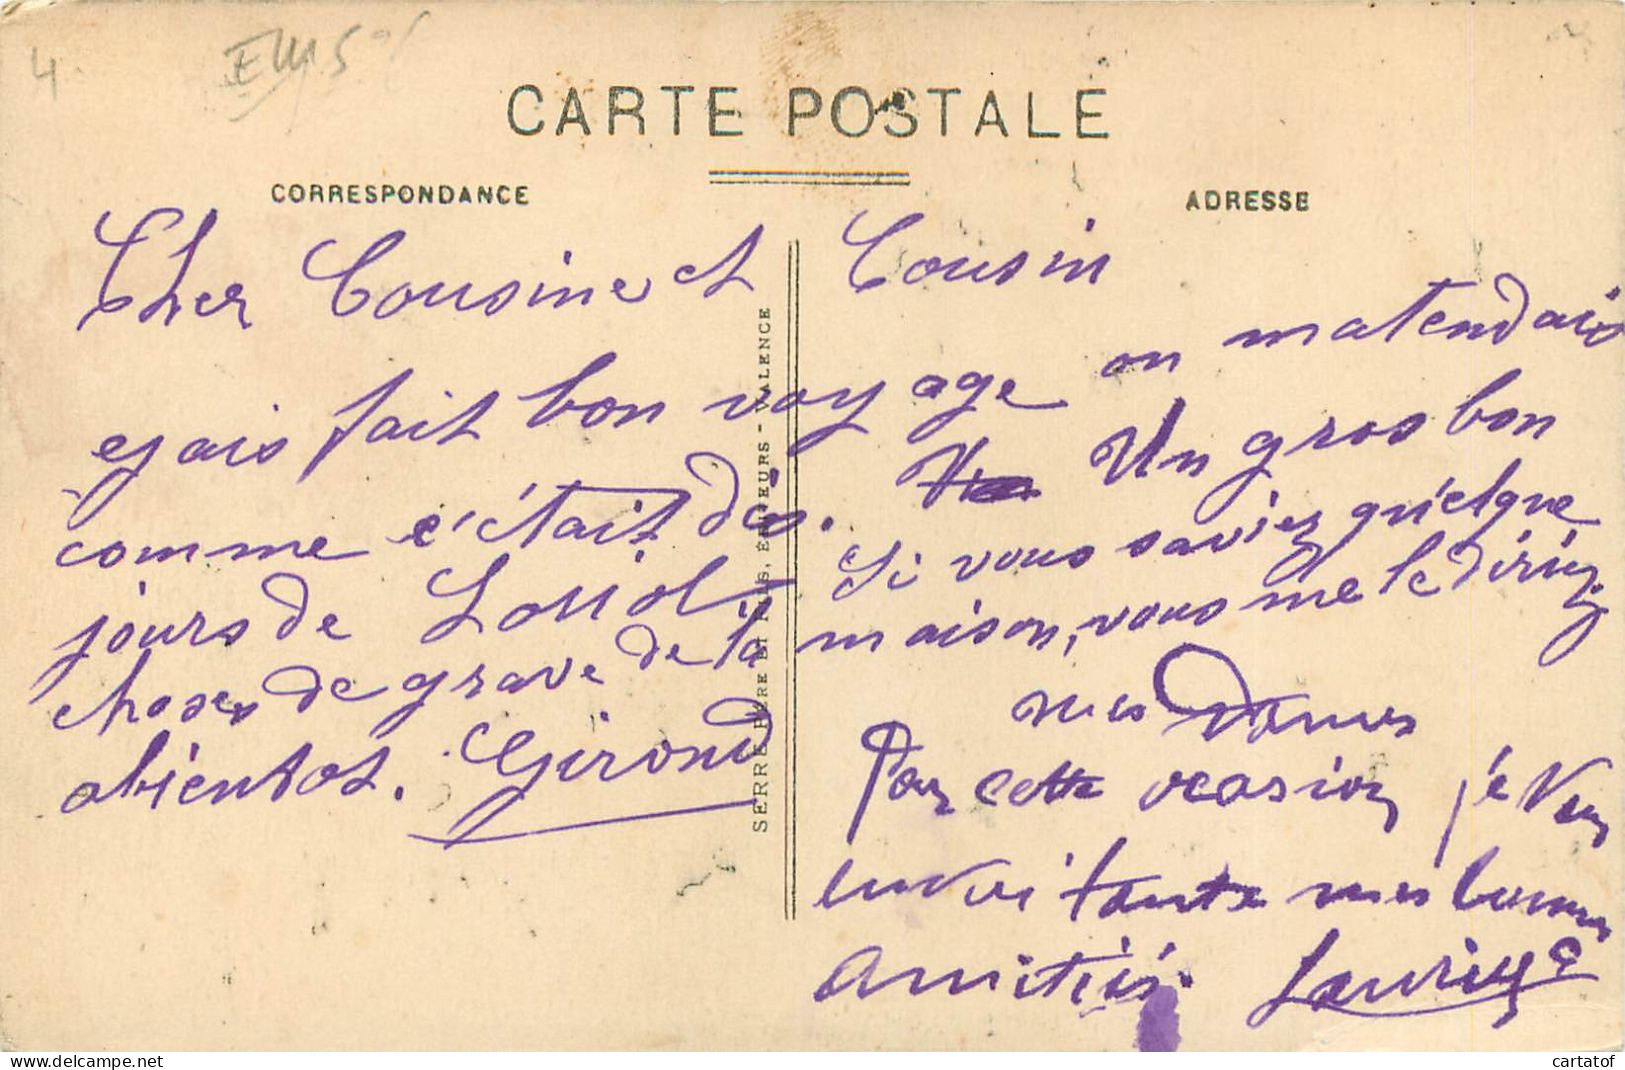 4
CARTE POSTALE
CORRESPONDANCE
ADRESSE
Cher Cousine et Cousin
ejais fait bon voyage on matendais
comme c'était dis. Un gros bon
jours de Si vous saviez quelque
choses de grave de la maison, vous me le diriez
abientot. Girond
mes Dames
Par cette ocasion je vous
envoi toute mes bonnes
Amitiés.
SERRE PÈRE ET FILS, ÉDITEURS - VALENCE
www.delcampe.net
cartatof